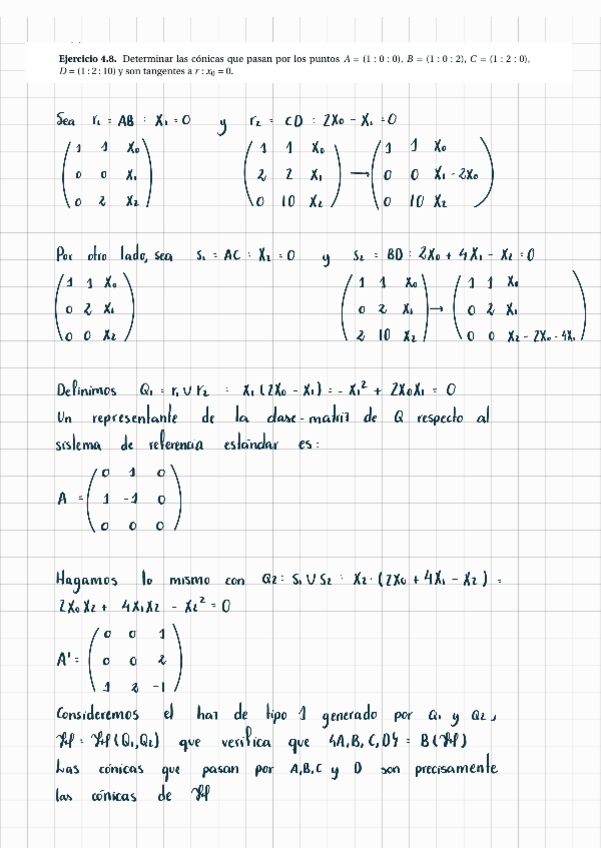 Ejercicio 4.8. Determinar las cónicas que pasan por los puntos A = (1 : 0 : 0), B = (1 : 0 : 2), C = (1 : 2 : 0),
D = (1 : 2 : 10) y son tangentes a r : x₀ = 0.
Sea r₁ = AB : X₁ = 0 y r₂ = CD : 2X₀ - X₁ = 0
(1 1 X₀) (1 1 X₀) (1 1 X₀)
(0 0 X₁) (2 2 X₁) → (0 0 X₁ - 2X₀)
(0 2 X₂) (0 10 X₂) (0 10 X₂)
Por otro lado, sea s₁ = AC : X₂ = 0 y s₂ = BD : 2X₀ + 4X₁ - X₂ = 0
(1 1 X₀) (1 1 X₀) (1 1 X₀)
(0 2 X₁) (0 2 X₁) → (0 2 X₁)
(0 0 X₂) (2 10 X₂) (0 0 X₂ - 2X₀ - 4X₁)
Definimos Q₁ = r₁ ∪ r₂ : X₁(2X₀ - X₁) = - X₁² + 2X₀X₁ = 0
Un representante de la clase-matriz de Q respecto al
sistema de referencia estándar es:
(0 1 0)
A = (1 -1 0)
(0 0 0)
Hagamos lo mismo con Q₂ : S₁ ∪ S₂ : X₂·(2X₀ + 4X₁ - X₂) =
2X₀X₂ + 4X₁X₂ - X₂² = 0
(0 0 1)
A' = (0 0 2)
(1 2 -1)
Consideremos el haz de tipo 1 generado por Q₁ y Q₂,
ℋ = ℋ(Q₁,Q₂) que verifica que {A,B,C,D} = B(ℋ)
Las cónicas que pasan por A,B,C y D son precisamente
las cónicas de ℋ